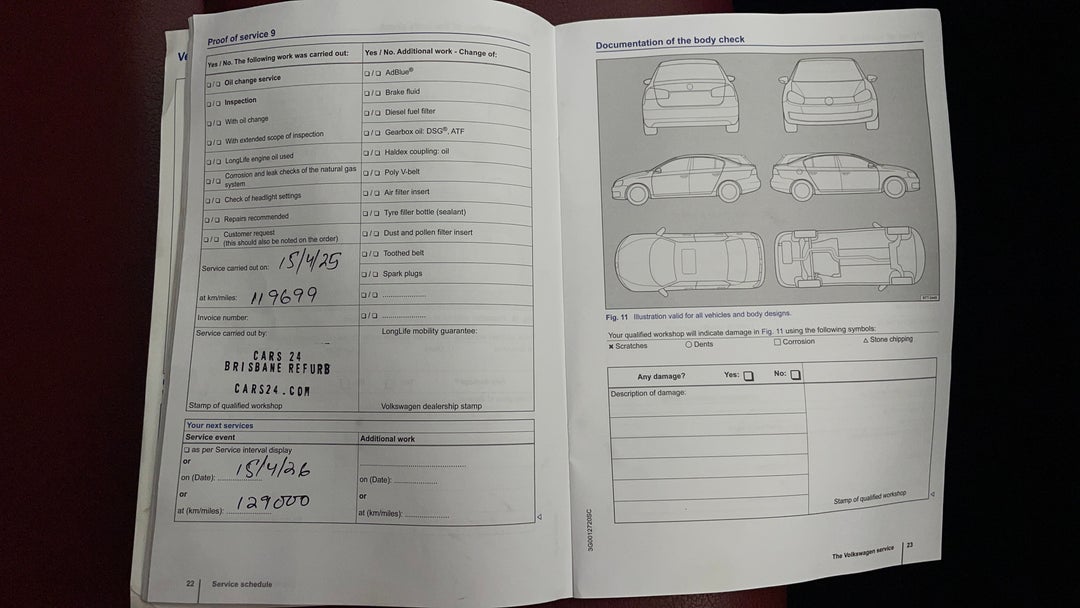 Ve
Proof of service 9
Yes / No. The following work was carried out:
❑ / ❑ Oil change service
❑ / ❑ Inspection
❑ / ❑ With oil change
❑ / ❑ With extended scope of inspection
❑ / ❑ LongLife engine oil used
❑ / ❑ Corrosion and leak checks of the natural gas
system
❑ / ❑ Check of headlight settings
❑ / ❑ Repairs recommended
❑ / ❑ Customer request
(this should also be noted on the order)
Service carried out on: 15/4/25
at km/miles: 119699
Invoice number:
Service carried out by:
CARS 24
BRISBANE REFURB
CARS24.COM
Stamp of qualified workshop
Yes / No. Additional work - Change of:
❑ / ❑ AdBlue®
❑ / ❑ Brake fluid
❑ / ❑ Diesel fuel filter
❑ / ❑ Gearbox oil: DSG®, ATF
❑ / ❑ Haldex coupling: oil
❑ / ❑ Poly V-belt
❑ / ❑ Air filter insert
❑ / ❑ Tyre filler bottle (sealant)
❑ / ❑ Dust and pollen filter insert
❑ / ❑ Toothed belt
❑ / ❑ Spark plugs
❑ / ❑ ....................
❑ / ❑ ....................
LongLife mobility guarantee:
Volkswagen dealership stamp
Your next services
Service event
❑ as per Service interval display
or
on (Date): 15/4/26
or
at (km/miles): 129000
Additional work
on (Date): ....................
or
at (km/miles): ....................
22 Service schedule
Documentation of the body check
Fig. 11 Illustration valid for all vehicles and body designs.
Your qualified workshop will indicate damage in Fig. 11 using the following symbols:
✖ Scratches ○ Dents ☐ Corrosion △ Stone chipping
Any damage? Yes: ❑ No: ❑
Description of damage:
Stamp of qualified workshop
3G0012720SC
The Volkswagen service 23